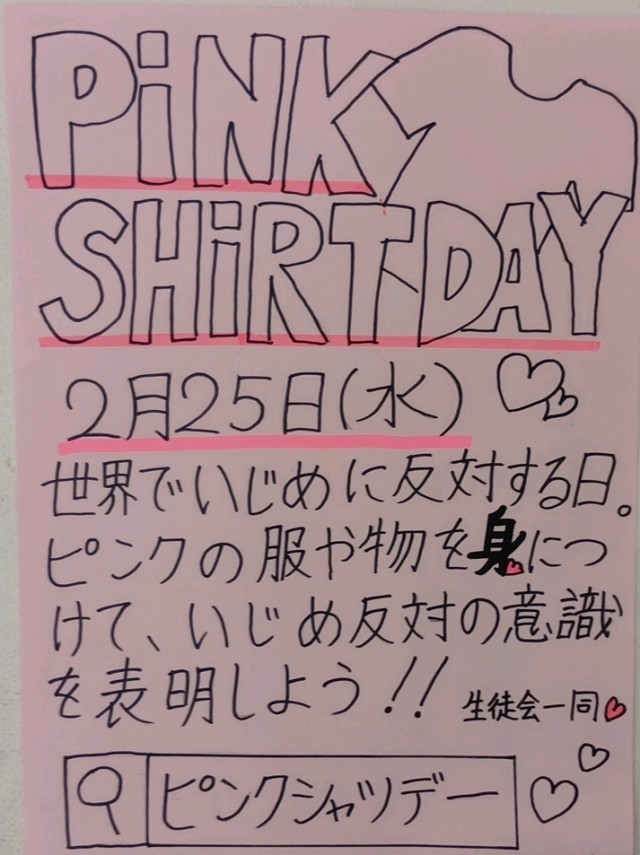 PiNK
SHiRT DAY
2月25日(水)
世界でいじめに反対する日。
ピンクの服や物を身につ
けて、いじめ反対の意識
を表明しよう!!
生徒会一同
ピンクシャツデー